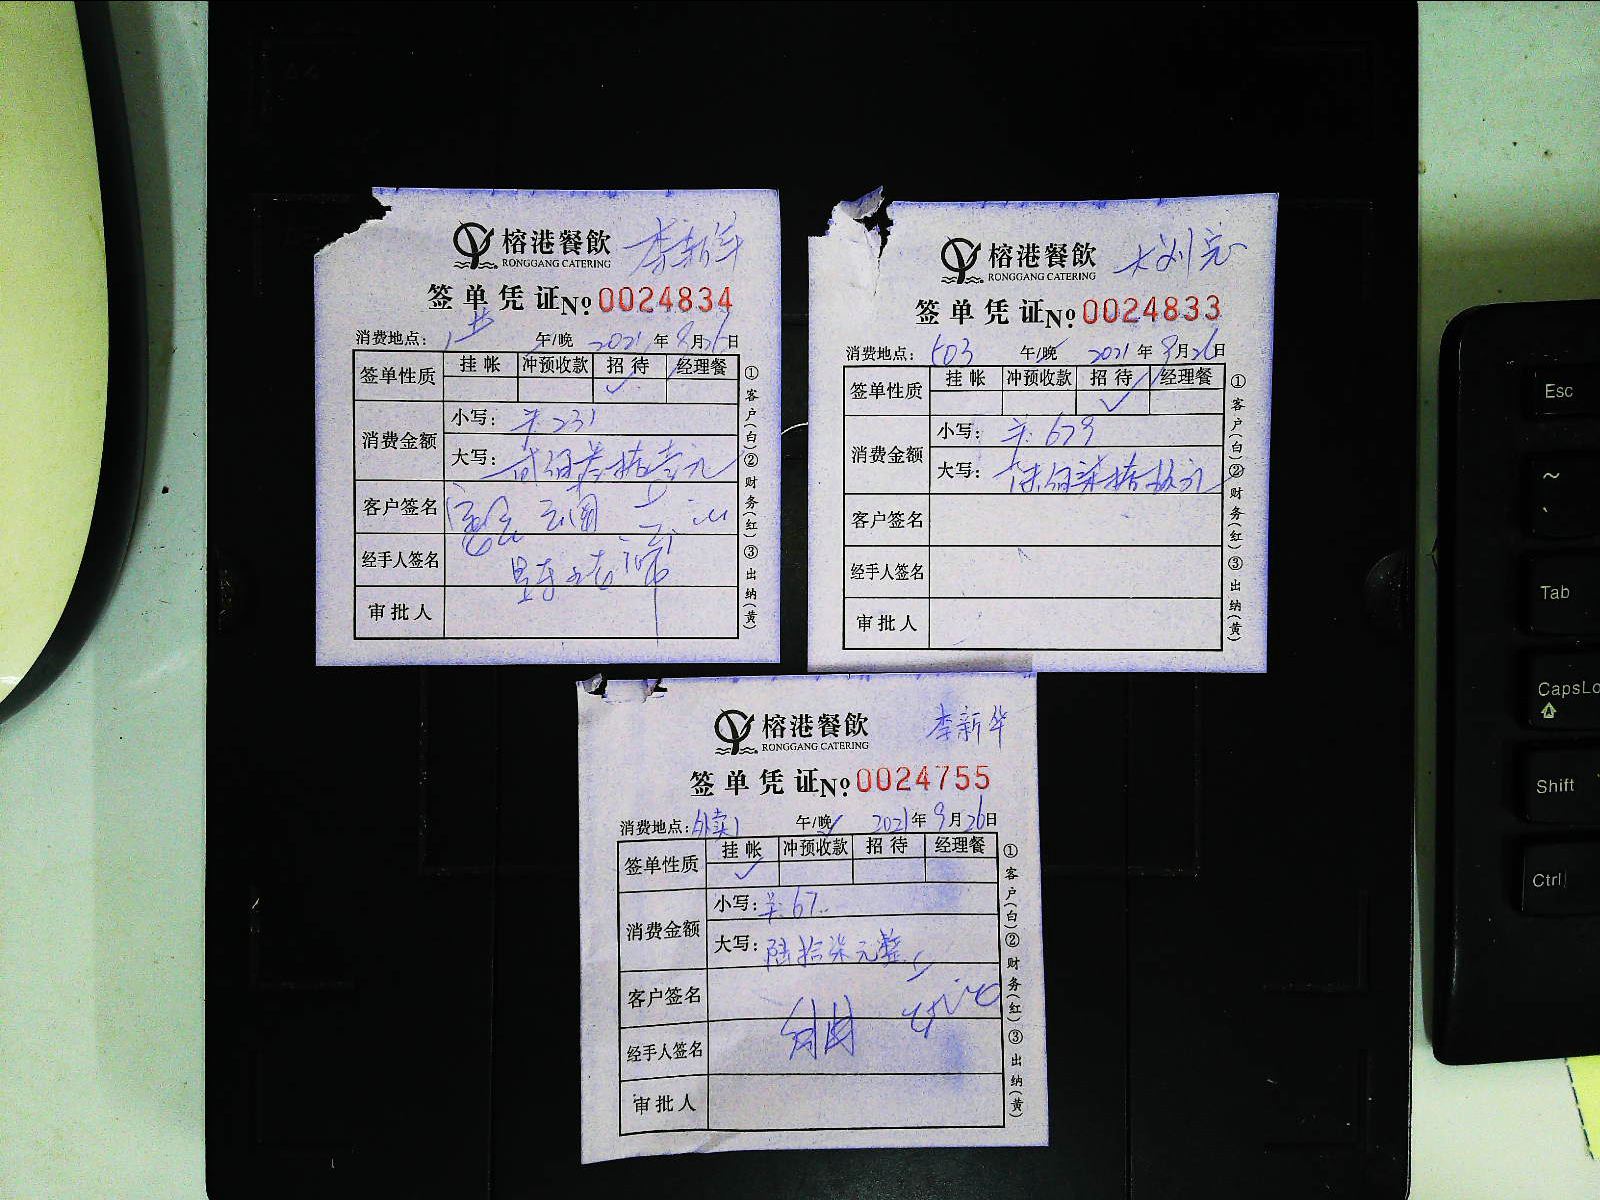 榕港餐飲 李新华
RONGGANG CATERING
签单凭证№0024834
消费地点： 午/晚 2021年9月26日
签单性质 挂帐 冲预收款 招待 经理餐
消费金额
小写：羊231
大写：贰佰叁拾壹元
客户签名
经手人签名
审批人
①客户(白)②财务(红)③出纳(黄)
榕港餐飲
RONGGANG CATERING
签单凭证№0024833
消费地点：503 午/晚 2021年9月26日
签单性质 挂帐 冲预收款 招待 经理餐
消费金额
小写：羊679
大写：陆佰柒拾玖元
客户签名
经手人签名
审批人
①客户(白)②财务(红)③出纳(黄)
榕港餐飲 李新华
RONGGANG CATERING
签单凭证№0024755
消费地点：外卖1 午/晚 2021年9月26日
签单性质 挂帐 冲预收款 招待 经理餐
消费金额
小写：羊67
大写：陆拾柒元整
客户签名
经手人签名
审批人
①客户(白)②财务(红)③出纳(黄)
Esc
~
Tab
CapsLo
Shift
Ctrl